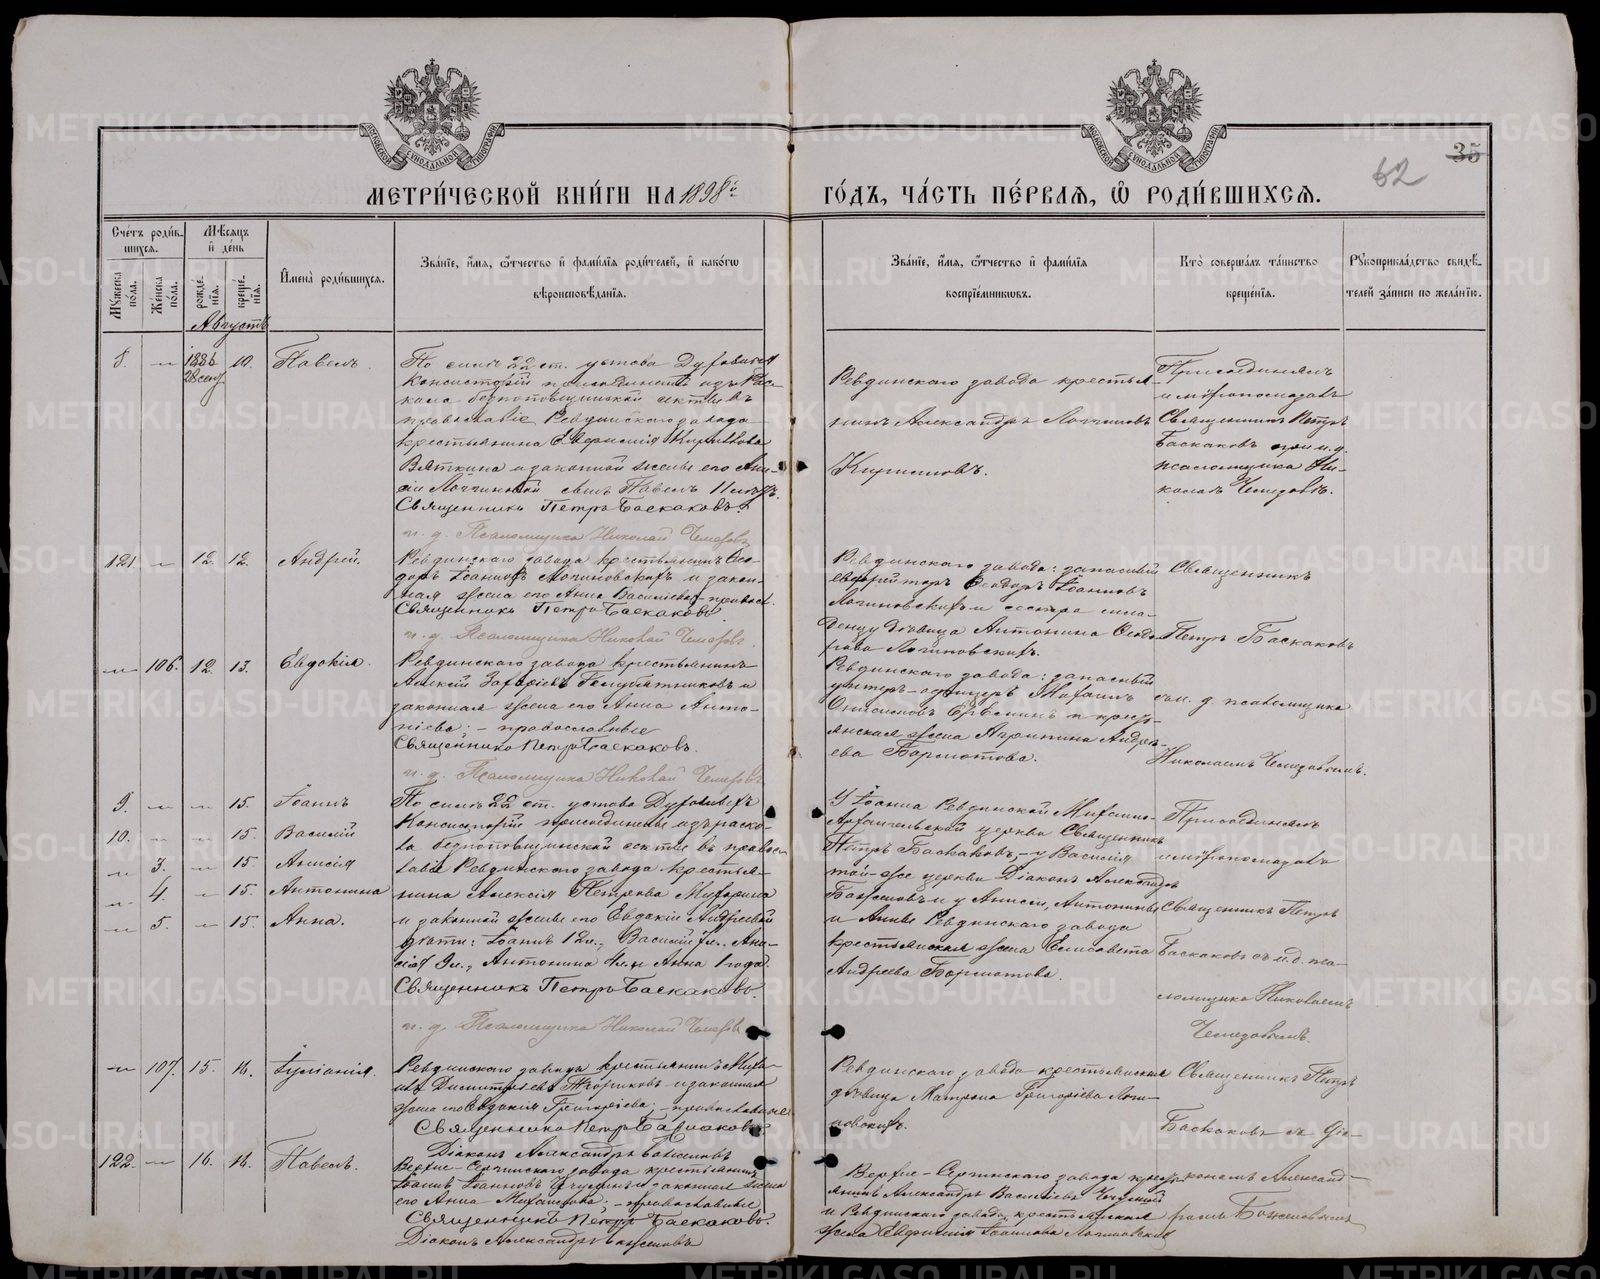 35
62
МЕТРИ́ЧЕСКОЙ КНИ́ГИ НА 1898й
ГО́ДЪ, ЧА́СТЬ ПЕ́РВАѦ, Ѡ҆ РОДИ́ВШИХСѦ.
Сче́тъ роди́в-
шихся.
Мѣ́сяцъ
и҆ де́нь
Му́жеска
по́ла.
Же́нска
по́ла.
рожде́-
нїя.
креще́-
нїя.
И҆мена̀ роди́вшихся.
Зва́нїе, и҆́мя, ѻ҆́тчество и҆ фами́лїя роди́телей, и҆ како́гѡ
вѣроисповѣ́данїя.
Зва́нїе, и҆́мя, ѻ҆́тчество и҆ фами́лїя
воспрїе́мникѡвъ.
Кто̀ соверша́лъ та́инство
креще́нїя.
Рꙋкоприкла́дство свидѣ́-
телей за́писи по жела́нїю.
Августъ
8. — 1886 28 сент. 10. Павелъ.
По силѣ 22 ст. устава Духовныхъ
Консисторій присоединенъ изъ рас-
кола безпоповщинской секты въ
православіе Ревдинскаго завода
крестьянина Кириллова
Вяткина и законной жены его Ани-
сіи сынъ Павелъ 11 лѣтъ.
Священникъ Петръ Баскаковъ.
и. д. Псаломщика Николай
Ревдинскаго завода крестья-
нинъ Александръ Логгиновъ
Кирилловъ.
Присоединялъ
и мѵропомазалъ
Священникъ Петръ
Баскаковъ при и. д.
псаломщика Ни-
колаѣ
121. — 12. 12. Андрей.
Ревдинскаго завода крестьянинъ Ѳео-
доръ Іоанновъ Логиновскихъ и закон-
ная жена его Анна Василіева; правосл.
Священникъ Петръ Баскаковъ.
и. д. Псаломщика Николай
Ревдинскаго завода: запасный
ефрейторъ Ѳеодоръ Іоанновъ
Логиновскихъ и сестра мла-
денцу дѣвица Антонина Ѳеодо-
рова Логиновскихъ.
Священникъ
Петръ Баскаковъ
— 106. 12. 13. Евдокія.
Ревдинскаго завода крестьянинъ
Алексій Захаріевъ и
законная жена его Анна Анто-
ніева; — православные
Священникъ Петръ Баскаковъ.
и. д. Псаломщика Николай
Ревдинскаго завода: запасный
унтеръ-офицеръ Михаилъ
и кресть-
янская жена Агрипина Андре-
ева Бормотова.
съ и. д. псаломщика
Николаемъ
9. — — 15. Іоаннъ
10. — — 15. Василій
— 3. — 15. Анисія
— 4. — 15. Антонина
— 5. — 15. Анна.
По силѣ 22 ст. устава Духовныхъ
Консисторій присоединены изъ раско-
ла безпоповщинской секты въ правос-
лавіе Ревдинскаго завода крестья-
нина Алексія Петрова
и законной жены его Евдокіи Андреевой
дѣти: Іоаннъ 12 л., Василій 7 л., Ани-
сія 9 л., Антонина 4 л. и Анна 1 года.
Священникъ Петръ Баскаковъ.
и. д. Псаломщика Николай
У Іоанна Ревдинской Михаило-
Архангельской церкви Священникъ
Петръ Баскаковъ, — у Василія
той-же церкви Діаконъ Александръ
и у Анисіи, Антонины
и Анны Ревдинскаго завода
крестьянская жена Елисавета
Андреева Бормотова.
Присоединялъ
и мѵропомазалъ
Священникъ Петръ
Баскаковъ съ и. д. пса-
ломщика Николаемъ
— 107. 15. 16. Іуліанія.
Ревдинскаго завода крестьянинъ Миха-
илъ Димитріевъ и законная
жена его Евдокія Григоріева; — православные
Священникъ Петръ Баскаковъ
Діаконъ Александръ
Ревдинскаго завода крестьянская
дѣвица Матрона Григоріева Логи-
новскихъ.
Священникъ Петръ
Баскаковъ съ Діа-
кономъ Александ-
ромъ
122. — 16. 16. Павелъ.
Верхне-Сергинскаго завода крестьянинъ
Іоаннъ Іоанновъ и законная жена
его Анна Михаилова; — православные
Священникъ Петръ Баскаковъ.
Діаконъ Александръ
Верхне-Сергинскаго завода крест-
янинъ Александръ Василіевъ
и Ревдинскаго завода, крестьянская
жена Іоаннова Логиновскихъ
METRIKI.GASO-URAL.RU